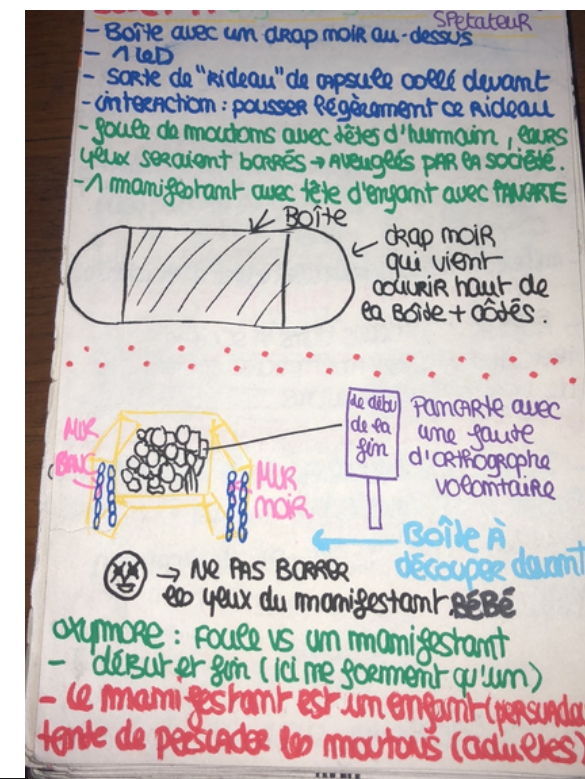 SPECTATEUR
- Boîte avec un drap noir au-dessus
- 1 LED
- Sorte de "rideau" de capsule collé devant
- interaction : pousser légèrement ce rideau
- foule de moutons avec têtes d'humain, leurs
yeux seraient barrés → aveuglés par la société.
- 1 manifestant avec tête d'enfant avec PANCARTE
Boîte
drap noir
qui vient
couvrir haut de
la boîte + côtés.
Le débu
de la
fin
PANCARTE avec
une faute
d'orthographe
volontaire
MUR
BANC
MUR
NOIR
Boîte à
découper devant
→ NE PAS BARRER
les yeux du manifestant BÉBÉ
oxymore : foule vs un manifestant
- début et fin (ici ne forment qu'un)
- le manifestant est un enfant
tente de persuader les moutons (adultes)